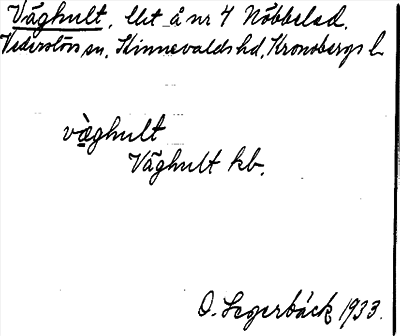 Väghult, lht å nr 4 Nöbbelad.
Vederslövs sn, Kinnevalds hd, Kronobergs l.
vä̀ghult
Väghult kb.
O. Segerbäck 1933.